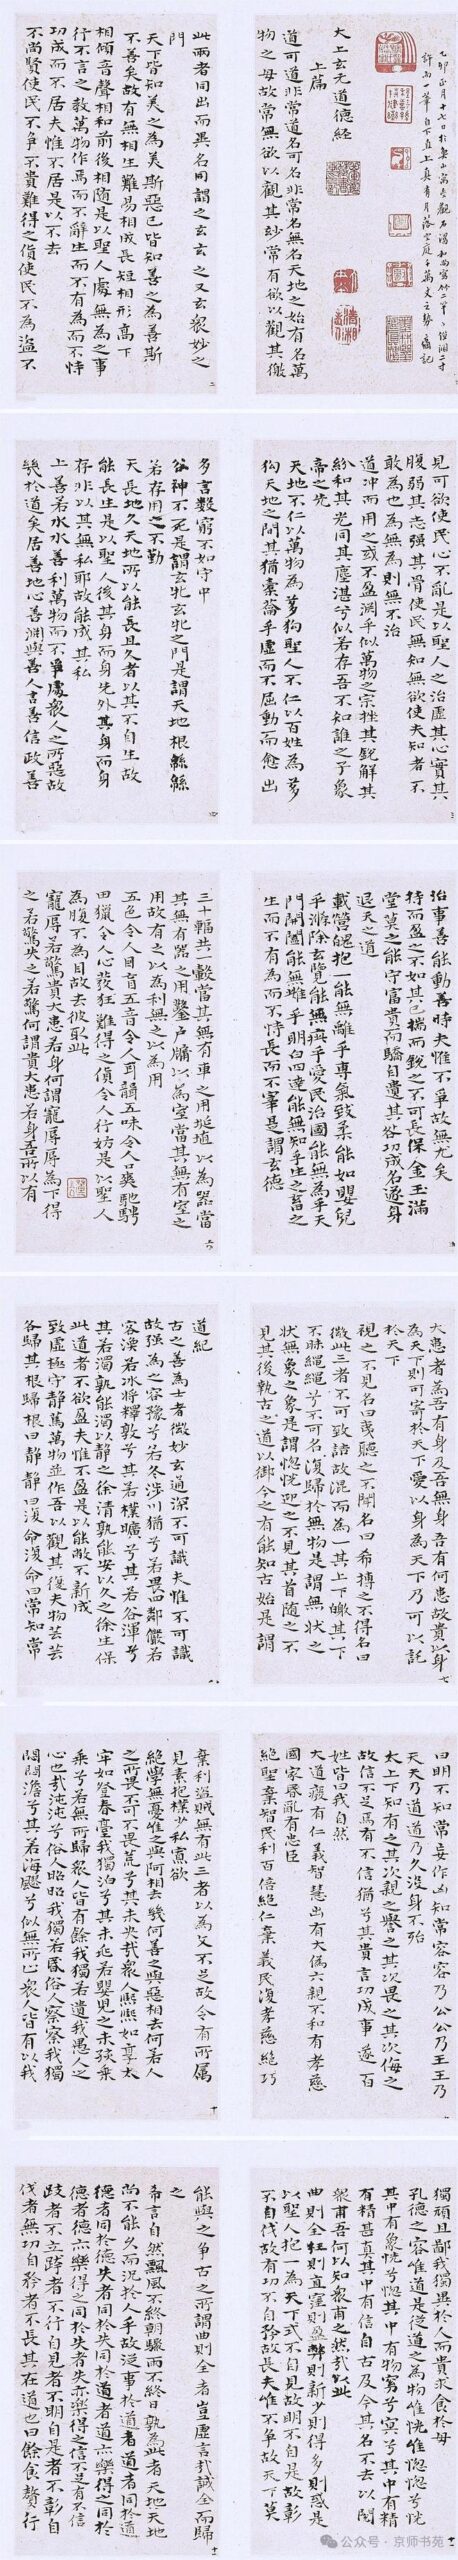 大上玄元道德經
上篇
道可道非常道名可名非常名無名天地之始有名萬
物之母故常無欲以觀其妙常有欲以觀其徼
此兩者同出而異名同謂之玄玄之又玄衆妙之
門
天下皆知美之為美斯惡已皆知善之為善斯
不善矣故有無相生難易相成長短相形高下
相傾音聲相和前後相隨是以聖人處無為之事
行不言之教萬物作焉而不辭生而不有為而不恃
功成而不居夫惟不居是以不去
不尚賢使民不爭不貴難得之貨使民不為盜不
二
見可欲使民心不亂是以聖人之治虛其心實其
腹弱其志強其骨使民無知無欲使夫知者不
敢為也為無為則無不治
道冲而用之或不盈淵乎似萬物之宗挫其銳解其
紛和其光同其塵湛兮似若存吾不知誰之子象
帝之先
天地不仁以萬物為芻狗聖人不仁以百姓為芻
狗天地之間其猶橐籥乎虛而不屈動而愈出
三
多言數窮不如守中
谷神不死是謂玄牝玄牝之門是謂天地根緜緜
若存用之不勤
天長地久天地所以能長且久者以其不自生故
能長生是以聖人後其身而身先外其身而身
存非以其無私耶故能成其私
上善若水水善利萬物而不爭處衆人之所惡故
幾於道矣居善地心善淵與善人言善信政善
四
治事善能動善時夫惟不爭故無尤矣
持而盈之不如其已揣而銳之不可長保金玉滿
堂莫之能守富貴而驕自遺其咎功成名遂身
退天之道
載營魄抱一能無離乎專氣致柔能如嬰兒
乎滌除玄覽能無疵乎愛民治國能無為乎天
門開闔能無雌乎明白四達能無知乎生之畜之
生而不有為而不恃長而不宰是謂玄德
三十輻共一轂當其無有車之用埏埴以為器當
其無有器之用鑿户牖以為室當其無有室之
用故有之以為利無之以為用
五色令人目盲五音令人耳聾五味令人口爽馳騁
田獵令人心發狂難得之貨令人行妨是以聖人
為腹不為目故去彼取此
寵辱若驚貴大患若身何謂寵辱辱為下得
之若驚失之若驚何謂貴大患若身吾所以有
六
大患者為吾有身及吾無身吾有何患故貴以身
為天下則可寄於天下愛以身為天下乃可以託
於天下
視之不見名曰夷聽之不聞名曰希搏之不得名曰
微此三者不可致詰故混而為一其上不皦其下
不昧繩繩兮不可名復歸於無物是謂無狀之
狀無象之象是謂惚恍迎之不見其首隨之不
見其後執古之道以御今之有能知古始是謂
七
道紀
古之善為士者微妙玄通深不可識夫惟不可識
故強為之容豫兮若冬涉川猶兮若畏四鄰儼若
容渙若冰將釋敦兮其若樸曠兮其若谷渾兮
其若濁孰能濁以静之徐清孰能安以久之徐生保
此道者不欲盈夫惟不盈是以能敝不新成
致虛極守静篤萬物並作吾以觀其復夫物芸芸
各歸其根歸根曰静静曰復命復命曰常知常
八
曰明不知常妄作凶知常容容乃公公乃王王乃
天天乃道道乃久沒身不殆
太上下知有之其次親之譽之其次畏之其次侮之
故信不足焉有不信猶兮其貴言功成事遂百
姓皆曰我自然
大道廢有仁義智慧出有大偽六親不和有孝慈
國家昏亂有忠臣
絕聖棄智民利百倍絕仁棄義民復孝慈絕巧
棄利盜賊無有此三者以為文不足故令有所屬
見素抱樸少私寡欲
絕學無憂唯之與阿相去幾何善之與惡相去何若人
之所畏不可不畏荒兮其未央哉衆人熙熙如享太
牢如登春臺我獨泊兮其未兆若嬰兒之未孩乘
乘兮若無所歸衆人皆有餘我獨若遺我愚人之
心也哉沌沌兮俗人昭昭我獨若昏俗人察察我獨
悶悶澹兮其若海飂兮似無所止衆人皆有以我
十
獨頑且鄙我獨異於人而貴求食於母
孔德之容惟道是從道之為物惟恍惟惚惚兮恍
其中有象恍兮惚其中有物窈兮冥兮其中有精
其精甚真其中有信自古及今其名不去以閱
衆甫吾何以知衆甫之然哉以此
曲則全枉則直窪則盈弊則新少則得多則惑是
以聖人抱一為天下式不自見故明不自是故彰
不自伐故有功不自矜故長夫惟不爭故天下莫
十一
能與之爭古之所謂曲則全者豈虛言哉誠全而歸
之
希言自然飄風不終朝驟雨不終日孰為此者天地天地
尚不能久而況於人乎故從事於道者道者同於道
德者同於德失者同於失同於道者道亦樂得之同於
德者德亦樂得之同於失者失亦樂得之信不足有不信
跂者不立跨者不行自見者不明自是者不彰自
伐者無功自矜者不長其在道也曰餘食贅行
十二
公众号·京师书苑